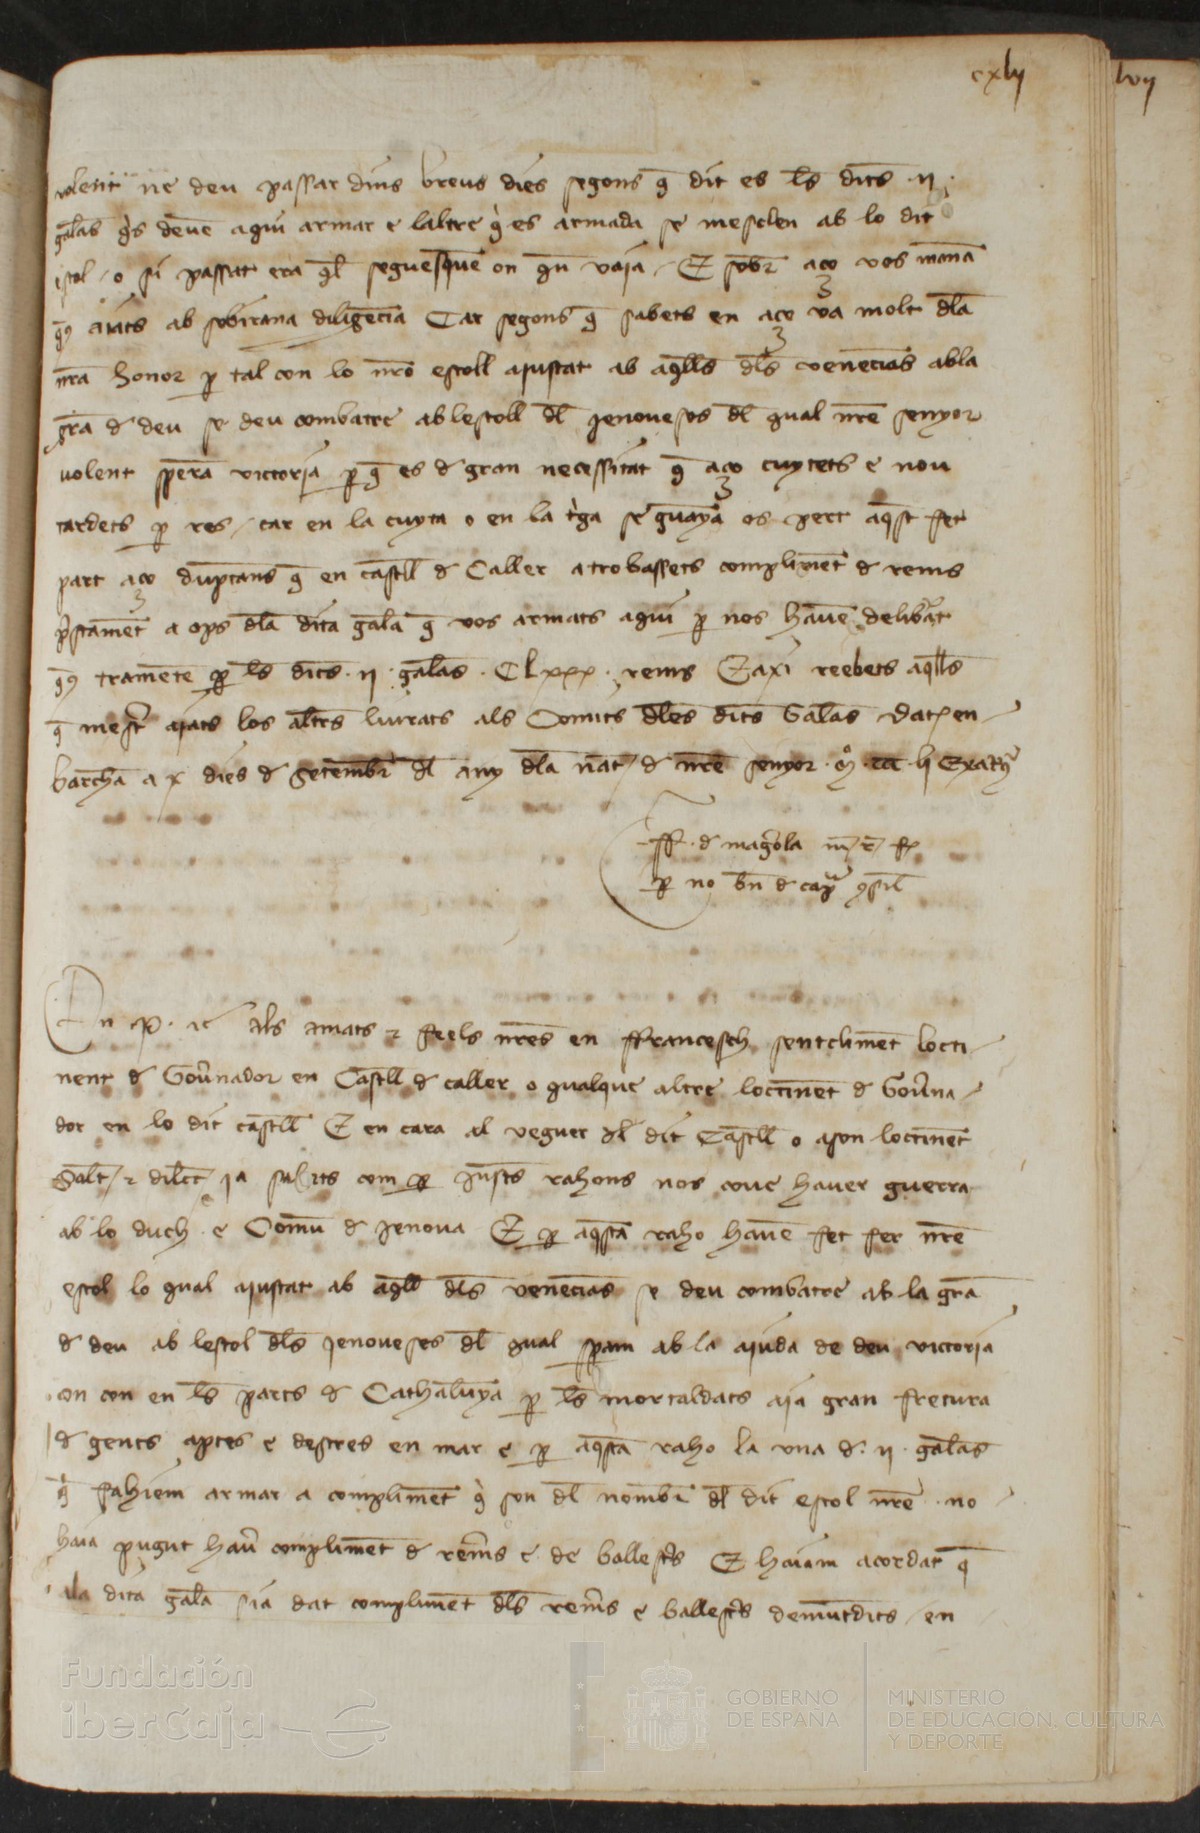 cxlij
lvij
volent ne deu passar dins breus dies segons q̄ dit es l̄s dits .ij.
galeas q̀s deuē aqui armar e laltre q̀ es armada se mesclen ab lo dit
estol / o si passat era q̄l seguesquē on q̄n vaia / E sobr̄ aço vos manā
q̄ aiats ab sobirana diligēcia Car segons q̄ sabets en aço va molt dl̄a
nr̄a honor p̲ tal con lo nr̄o estoll aiustat ab aq̄lls dl̄s venecias abla
gr̄a d deu se deu combatre ablestoll dl̄ jenoueses dl̄ qual nr̄e senyor
volent sperā victoria p̲ q̄ es d gran necessitat q̄ aço cuytets e nou
tardets p̲ res / car en la cuyta o en la t'ga se guāyā os pert aq̄st fet
part aço duptans q̄ en castll d Caller atrobassets complimēt d rems
p̄stamēt a ops dl̄a dita galea q̄ vos armats aqui p̲ nos hauē delibat
q̄ tramete p̲ l̄s dits .ij. galeas . Clxxx . rems E axi reebets aq̄lls
q̄ mest̄ aiats los altr̄s liurats als Comits dl̄es dits Galeas Dat̄ en
barchā a x dies d Setembr̄ dl̄ any dl̄a nat̄ d nr̄e senyor . m̊ . ccc lj Exatr̄
ff . d magrola
p̲ no bn̄ d cap̄
En P . ae Als amats e feels nr̄es en ffrancesch sentclimēt locti-
nent d Gou̅nador en Castll d caller o qualque altre loctinēt d Gou̅na-
dor en lo dit castll E en cara al veguer dl̄ dit Castll o ason loctinēt
Salt̄ e dilcc̄ ja sabets com p̲ justs rahons nos coue hauer guerra
ab lo duch e Comū d Jenoua E p̲ aq̄sta raho hauē fet fer nr̄e
estol lo qual aiustat ab aq̄ll dl̄s venecias se deu combatre ab la gr̄a
d deu ab lestol dl̄s jenoueses dl̄ qual speram ab la aiuda de deu victoria
on con en l̄s parts d Cathalunya p̲ l̄s mortaldats aia gran fretura
d gents aptes e destres en mar e p̲ aq̄sta raho la vna d . ij . galeas
q̄ fahiem armar a complimēt q̀ son dl̄ nombr̄ dl̄ dit estol nr̄e . no
haia pugut hau̅ complimēt d rem̄s e de ballest̄s E haiam acordat q̄
ala dita galea sia dat complimēt dl̄s rem̄s e ballest̄s demūtdits / en
Fundación
iberCaja
GOBIERNO
DE ESPAÑA
MINISTERIO
DE EDUCACIÓN, CULTURA
Y DEPORTE